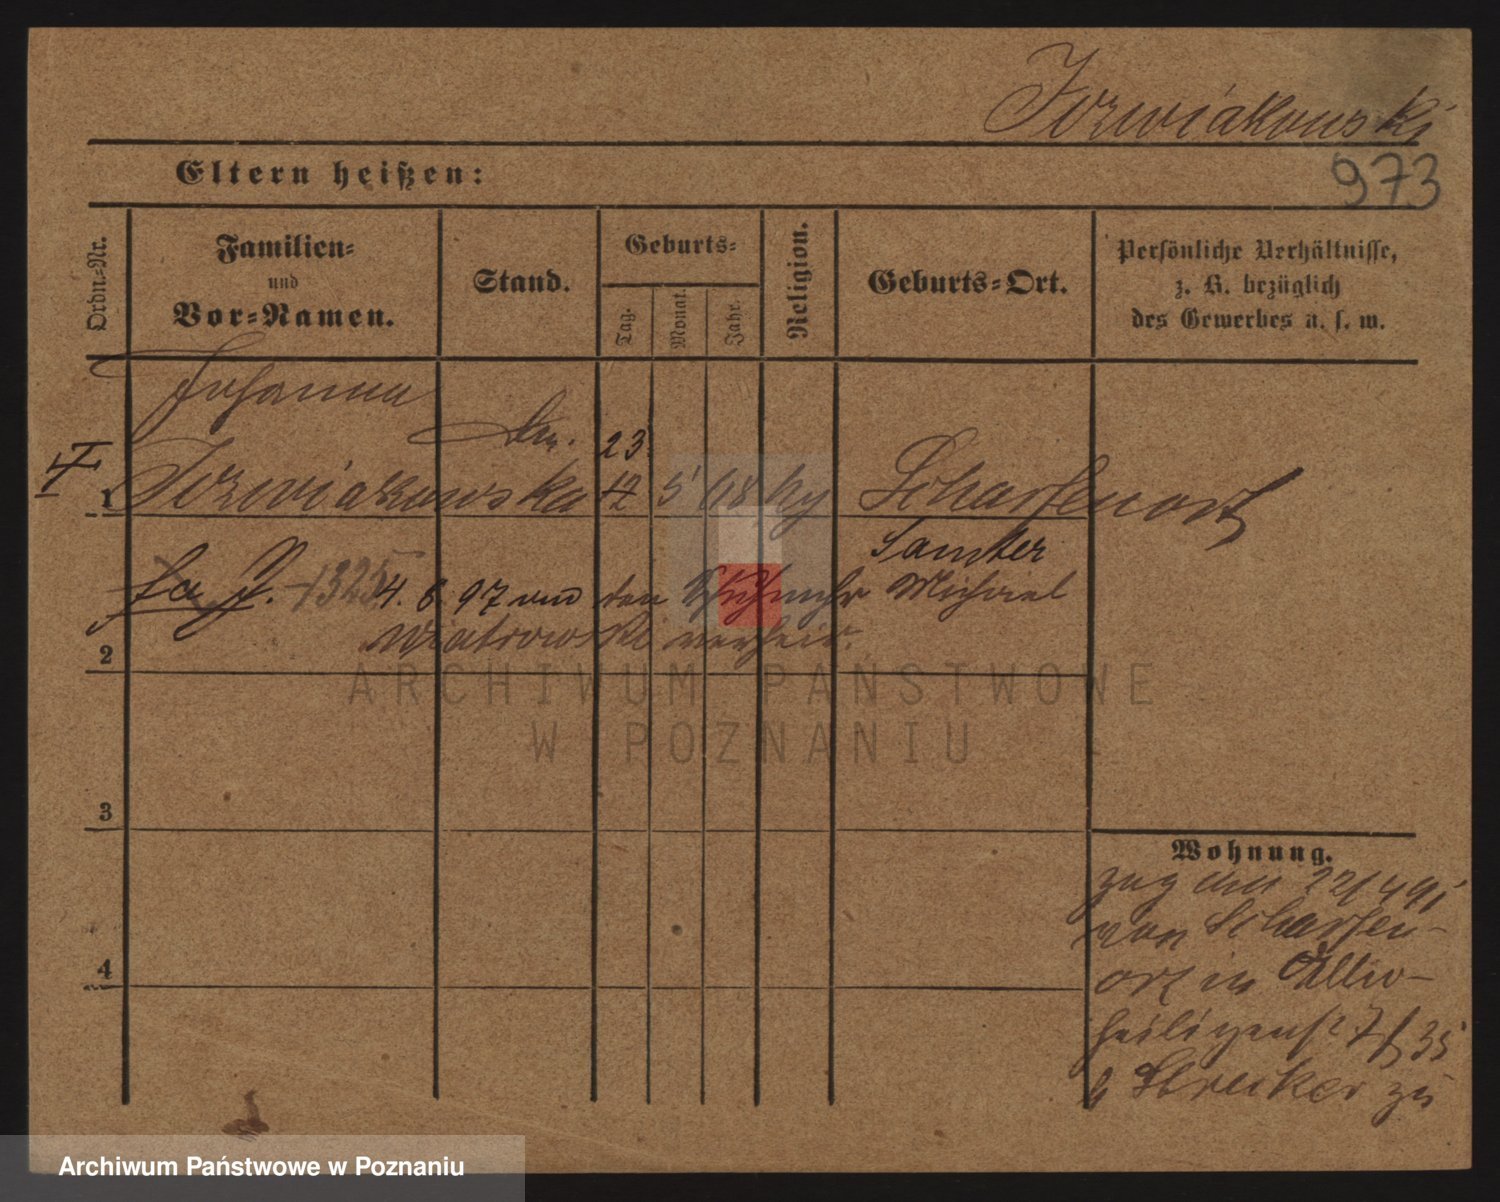 Jozwiakowski
Eltern heißen:
973
Ordn=Nr.
Familien=
und
Vor=Namen.
Stand.
Geburts=
Tag.
Monat.
Jahr.
Religion.
Geburts=Ort.
Persönliche Verhältnisse,
z. B. bezüglich
des Gewerbes u. s. w.
Johanna
23
1 Jozwiakowska 12 5 68 Scharfenort
Samter
1325
4. 6. 97 den Michael
Wiatrowski verheir.
2
3
4
Wohnung.
zug 22/4 91
von Scharfen-
ort in Aller-
heiligenst. 7/35
Strecker zu
ARCHIWUM PAŃSTWOWE
W POZNANIU
Archiwum Państwowe w Poznaniu